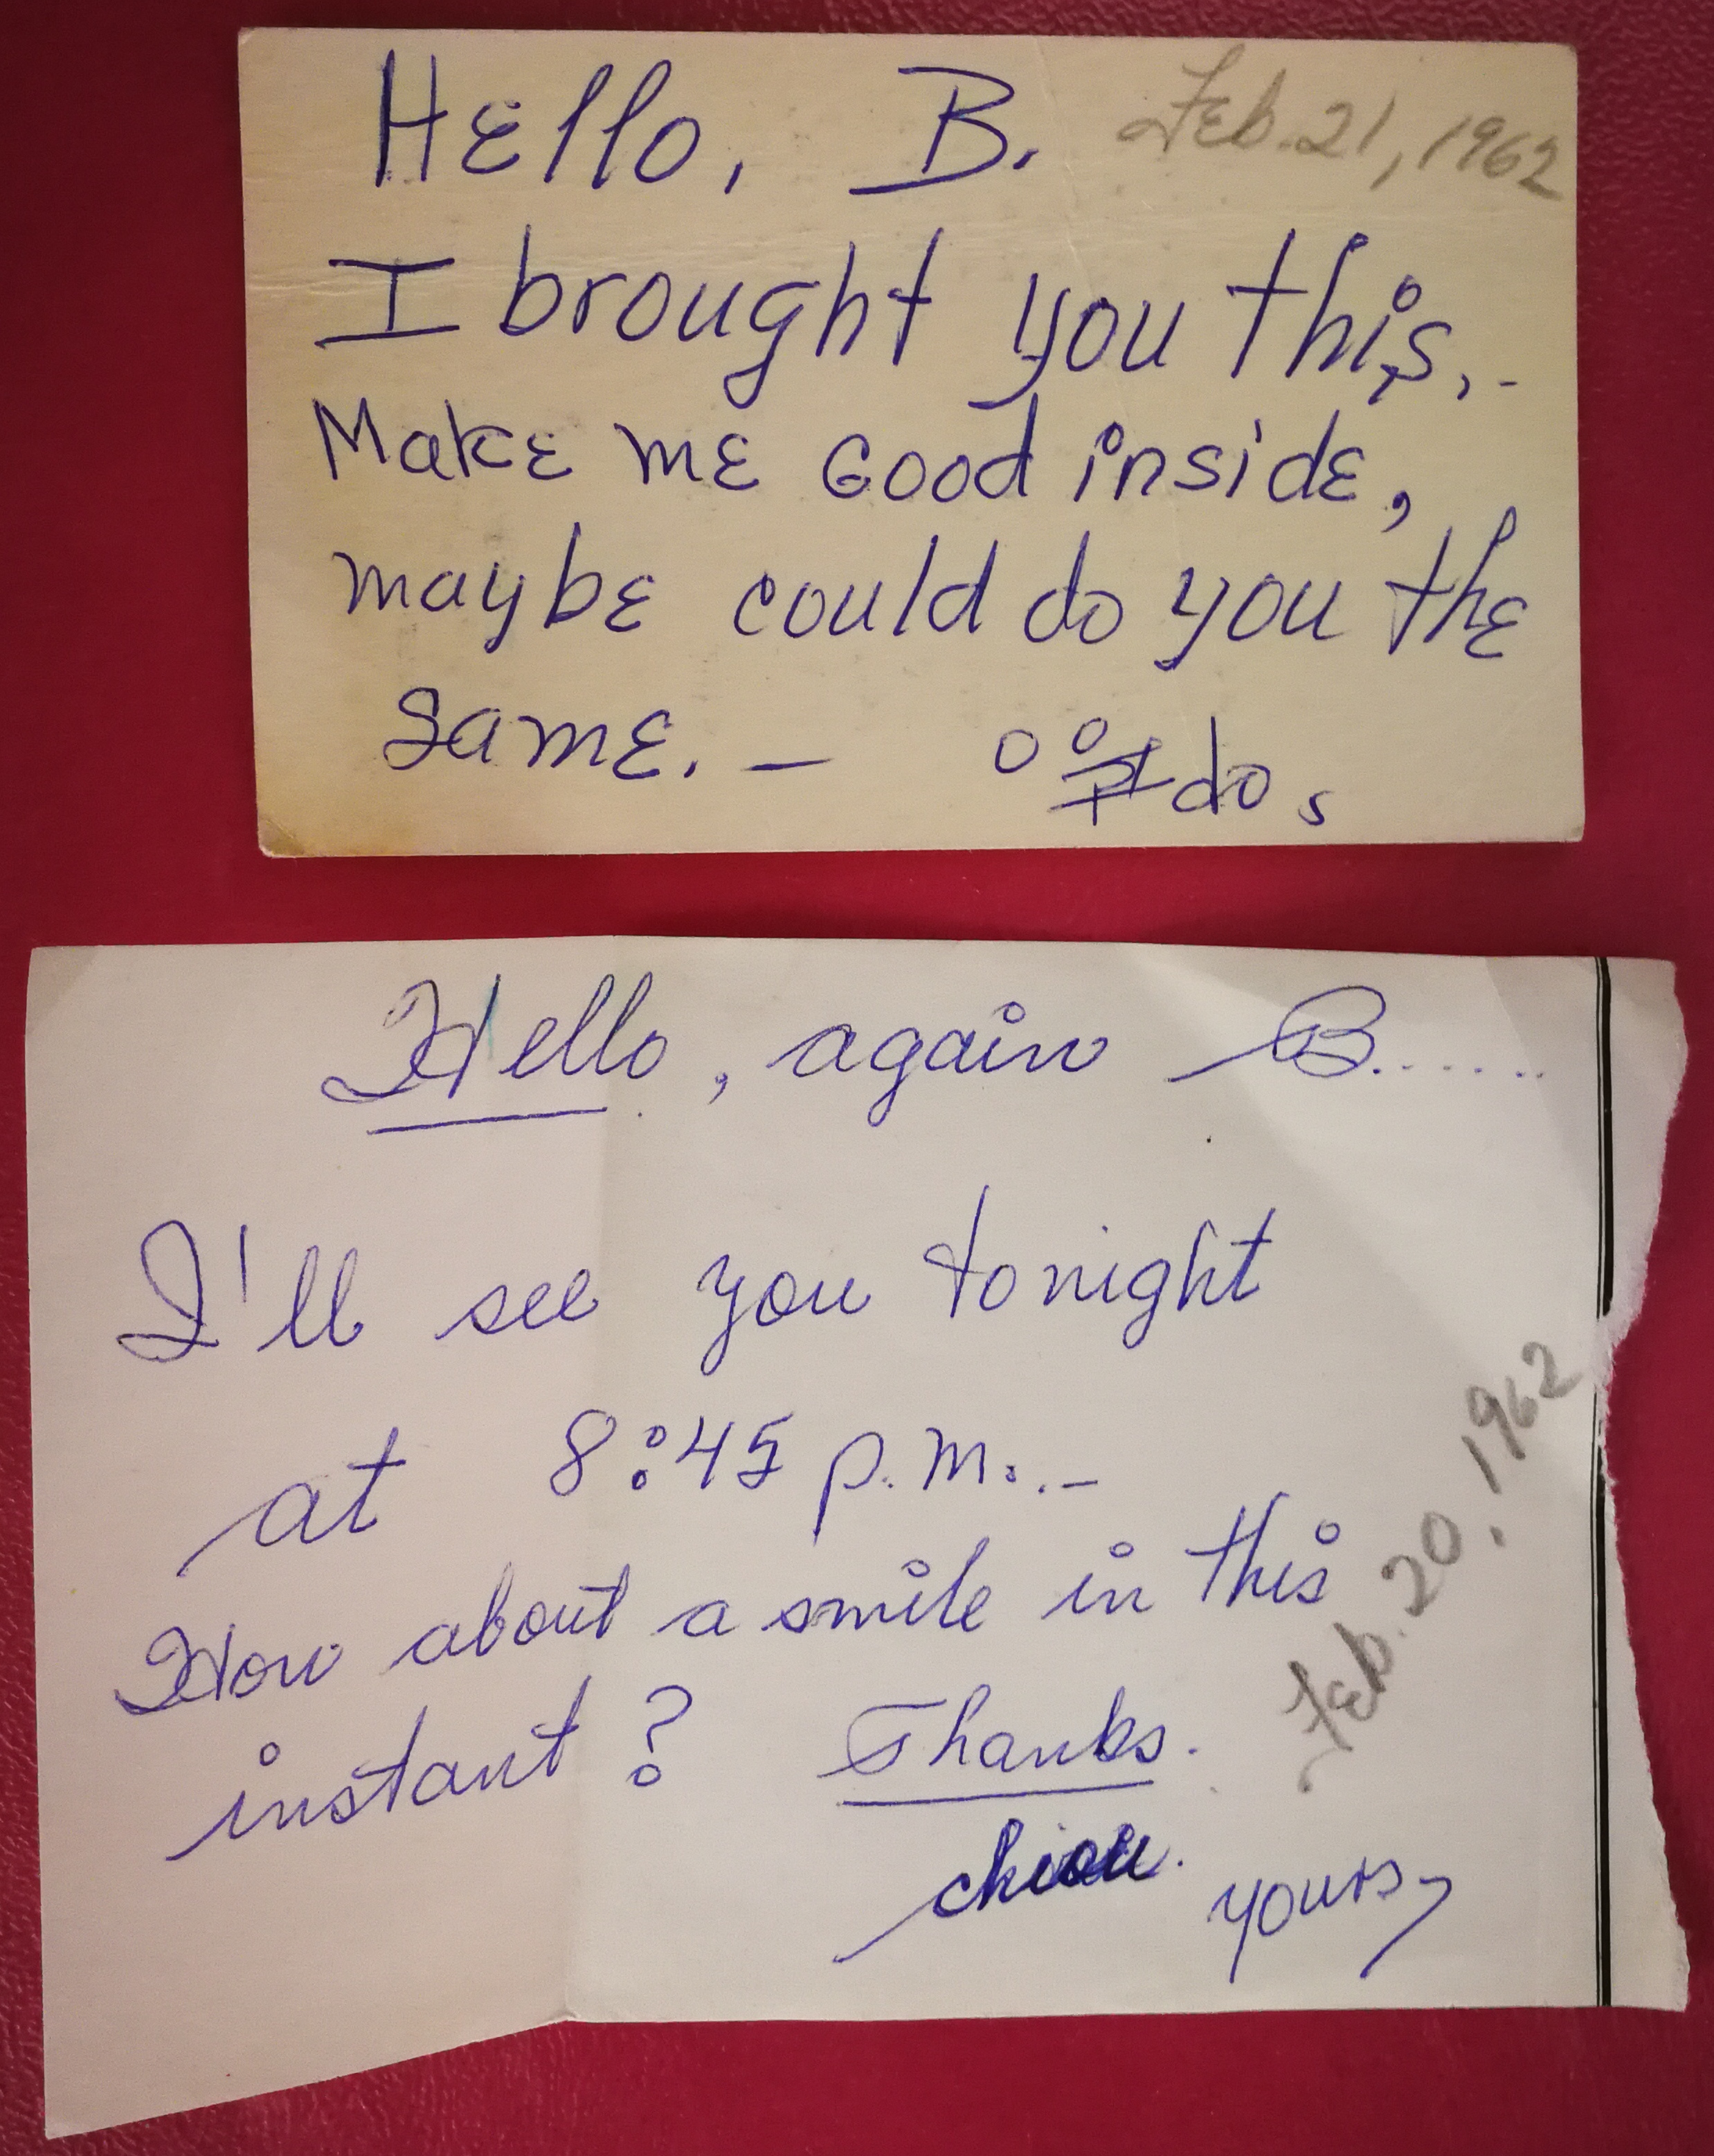 Hello, B. Feb. 21, 1962
I brought you this.-
Make me Good inside,
maybe could do you the
same. - do.
Hello, again B......
I'll see you tonight
at 8:45 p.m..-
How about a smile in this
instant? Thanks.
yours,
Feb. 20, 1962